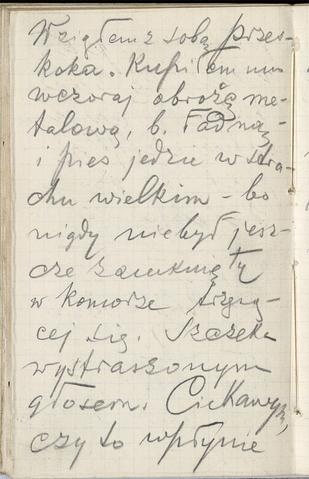 Wziąłem z sobą przes-
koka. Kupiłem mu
wczoraj obrożą me-
talową, b. ładną,
i pies jedzie w stra-
chu wielkim – bo
nigdy niebył jesz-
cze zamknięty
w komorze trzęsą-
cej się. Szczeka
wystraszonym
głosem. Ciekawym,
czy to wpłynie